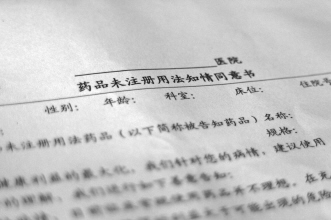 医院
药品未注册用法知情同意书
性别: 年龄: 科室: 床位: 住院号
未注册用法药品(以下简称被告知药品)名称:
规格:
健康利益的最大化,我们针对您的病情,建议使用
的理解,我们进行如下善意告知: